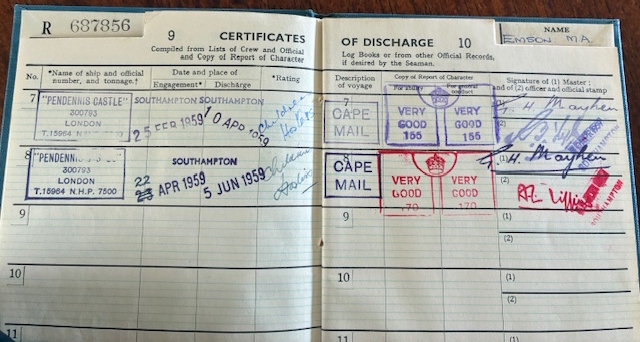 R 687856
9 CERTIFICATES
Compiled from Lists of Crew and Official
and Copy of Report of Character
No.
*Name of ship and official
number, and tonnage.†
Date and place of
Engagement* Discharge
*Rating
7
"PENDENNIS CASTLE"
300793
LONDON
T.15964 N.H.P. 7500
SOUTHAMPTON
SOUTHAMPTON
25 FEB 1959
APR 1959
8
"PENDENNIS
300793
LONDON
T.15964 N.H.P. 7500
SOUTHAMPTON
22
23 APR 1959
5 JUN 1959
9
10
11
OF DISCHARGE 10
Log Books or from other Official Records,
if desired by the Seaman.
NAME
EMSON M.A.
Description
of voyage
Copy of Report of Character
For ability
For general
conduct
Signature of (1) Master;
and of (2) officer and official stamp
7
CAPE
MAIL
VERY
GOOD
155
VERY
GOOD
155
H. Mayhew
8
CAPE
MAIL
VERY
GOOD
170
VERY
GOOD
170
(1)
H. Mayhew
SOUTHAMPTON
9
(1)
(2)
10
(1)
(2)
11
(1)